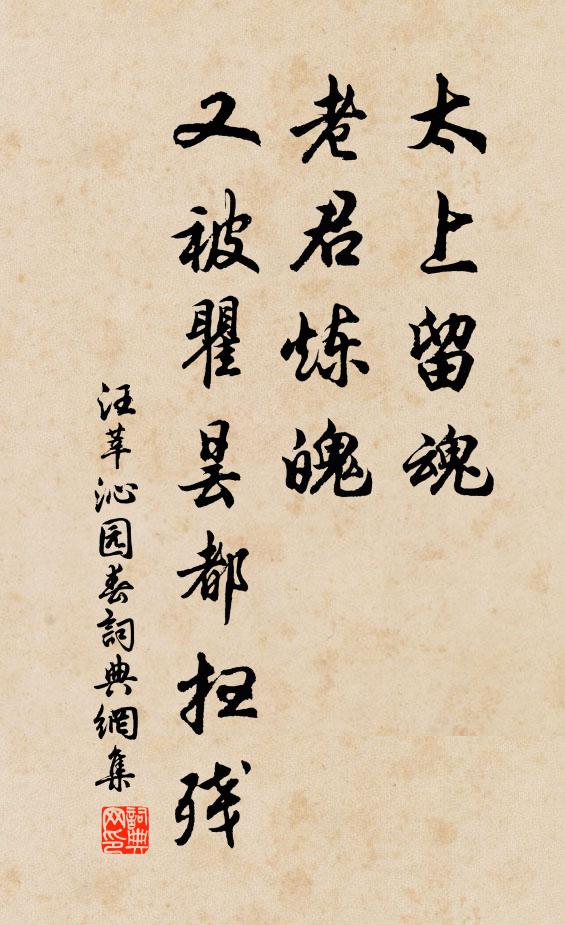 太上留魂
老君炼魄
又被瞿昙都扫残
汪莘沁园春詞典網集
詞典网印